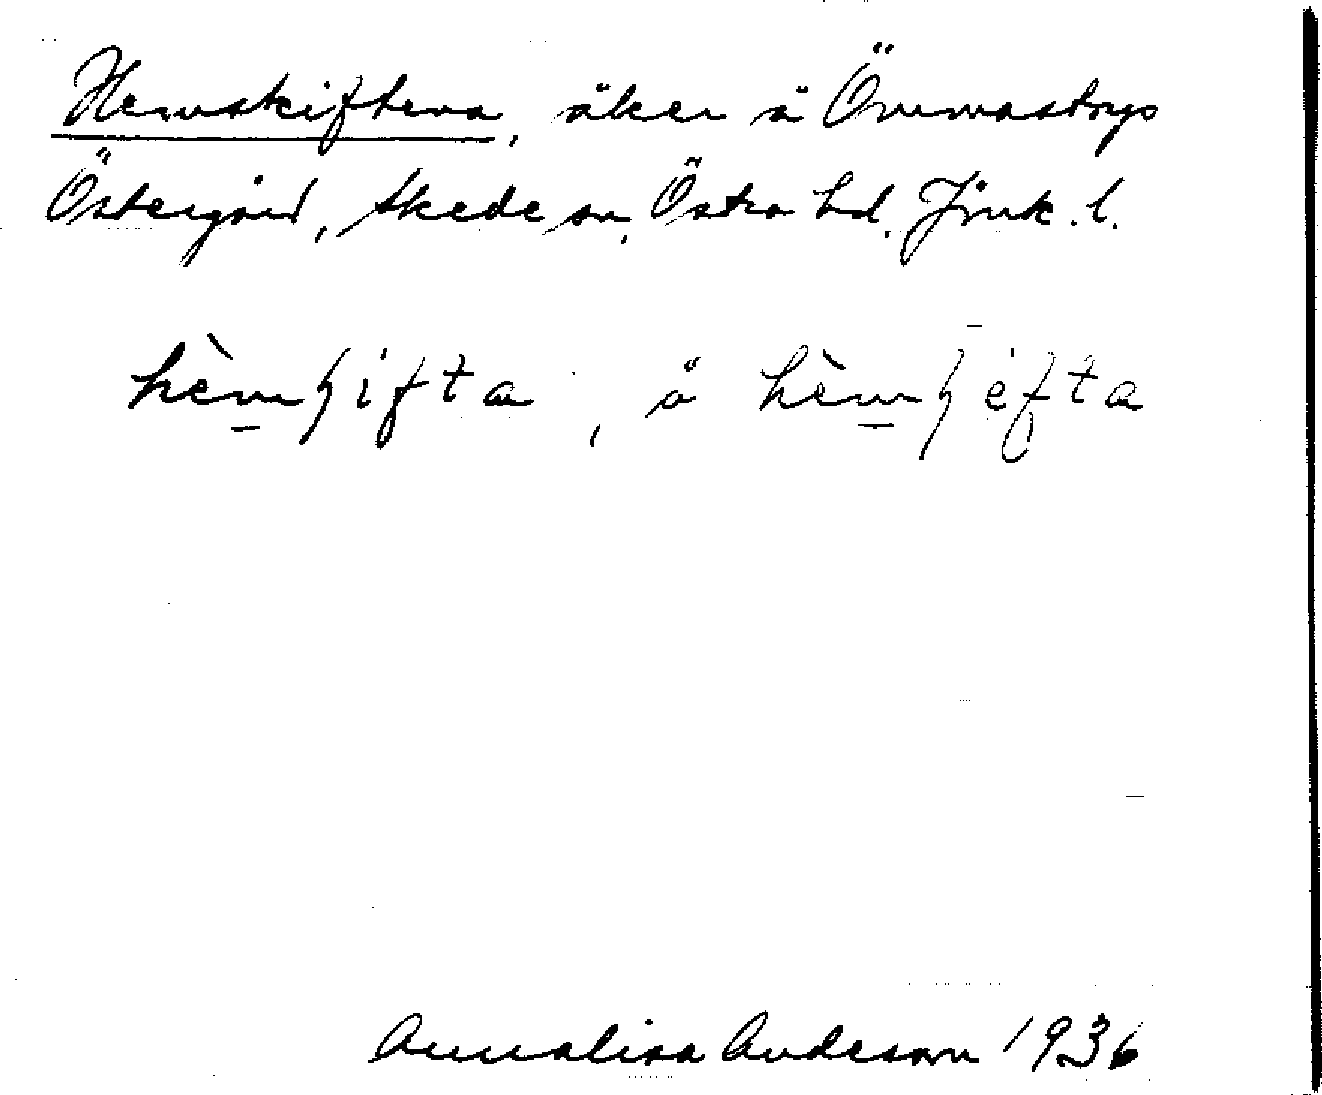 Hemskiftena, åker å Ömmastorps
Östergård, Skede sn, Östra hd. Jönk. l.
hèmʃifta, å hèmʃefta
Annalisa Anderson 1936